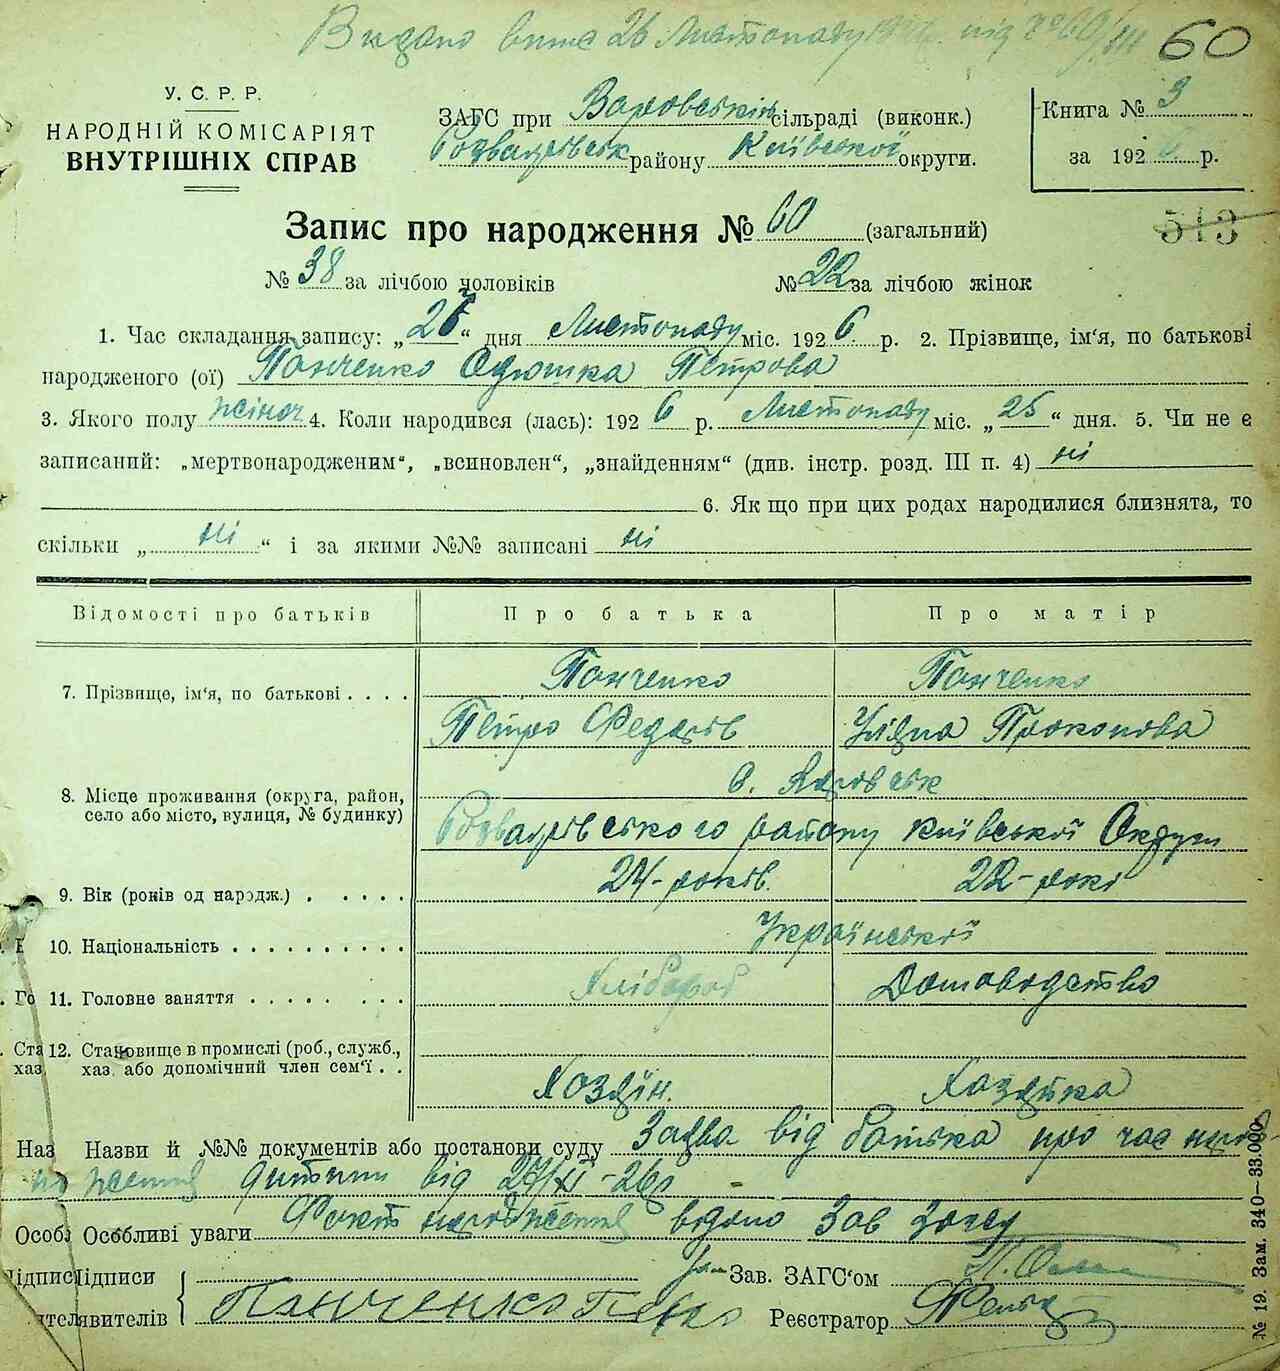 Видано випис 26 Листопаду 1926 р. під № 60/III 60
У. С. Р. Р.
НАРОДНІЙ КОМІСАРІЯТ
ВНУТРІШНІХ СПРАВ
ЗАГС при сільраді (виконк.)
Розважівськ району Київської округи.
Книга № 3
за 1926 р.
Запис про народження № 60 (загальний)
513
№ 38 за лічбою чоловіків № 22 за лічбою жінок
1. Час складання запису: „27“ дня Листопаду міс. 1926 р. 2. Прізвище, ім‘я, по батькові
народженого (ої) Панченко Одюшка Петрова
3. Якого полу жіноч 4. Коли народився (лась): 1926 р. Листопаду міс. „25“ дня. 5. Чи не є
записаний: „мертвонародженим“, „всиновлен“, „знайденням“ (див. інстр. розд. III п. 4) ні
6. Як що при цих родах народилися близнята, то
скільки „ні“ і за якими №№ записані ні
Відомості про батьків Про батька Про матір
7. Прізвище, ім‘я, по батькові . . . . Панченко Панченко
Петро Федорів Уляна Прокопова
8. Місце проживання (округа, район,
село або місто, вулиця, № будинку)
с.
Розважівського району Київської Округи
9. Вік (років од народж.) . . . . . . 24-років. 22-рокі
10. Національність . . . . . . . . . . Української
Го 11. Головне заняття . . . . . . . . Хлібороб Домоводство
Ста 12. Становище в промислі (роб., служб.,
хаз. хаз. або допомічний член сем‘ї . . Хозяін. Хазяйка
Наз Назви й №№ документів або постанови суду Заява від батька про час народ-
ження дитини від 27/XI-26р
Особл Особливі уваги Факт народження відомо Зав Загсу
Підпис Підписи Зав. ЗАГС‘ом
явителів явителів Панченко Петро Реєстратор
№ 19. Зам. 340—33.000